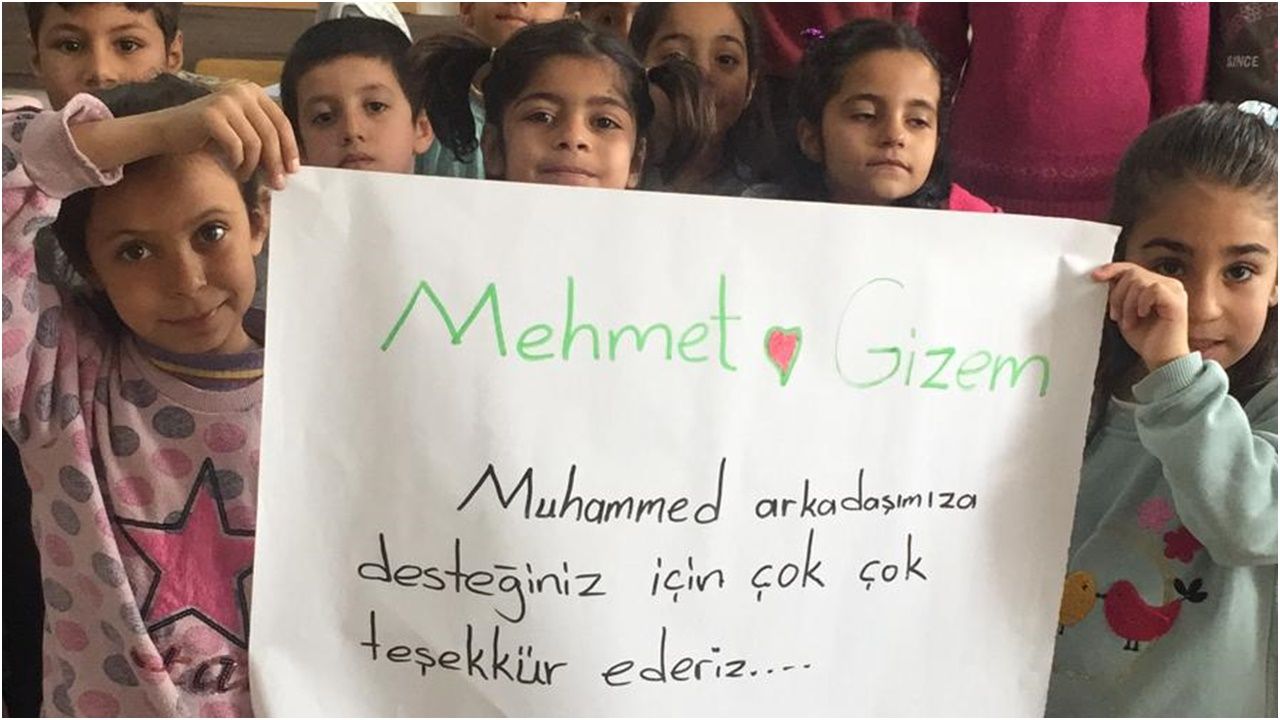 SINCE
Mehmet ♥ Gizem
Muhammed arkadaşımıza
desteğiniz için çok çok
teşekkür ederiz....